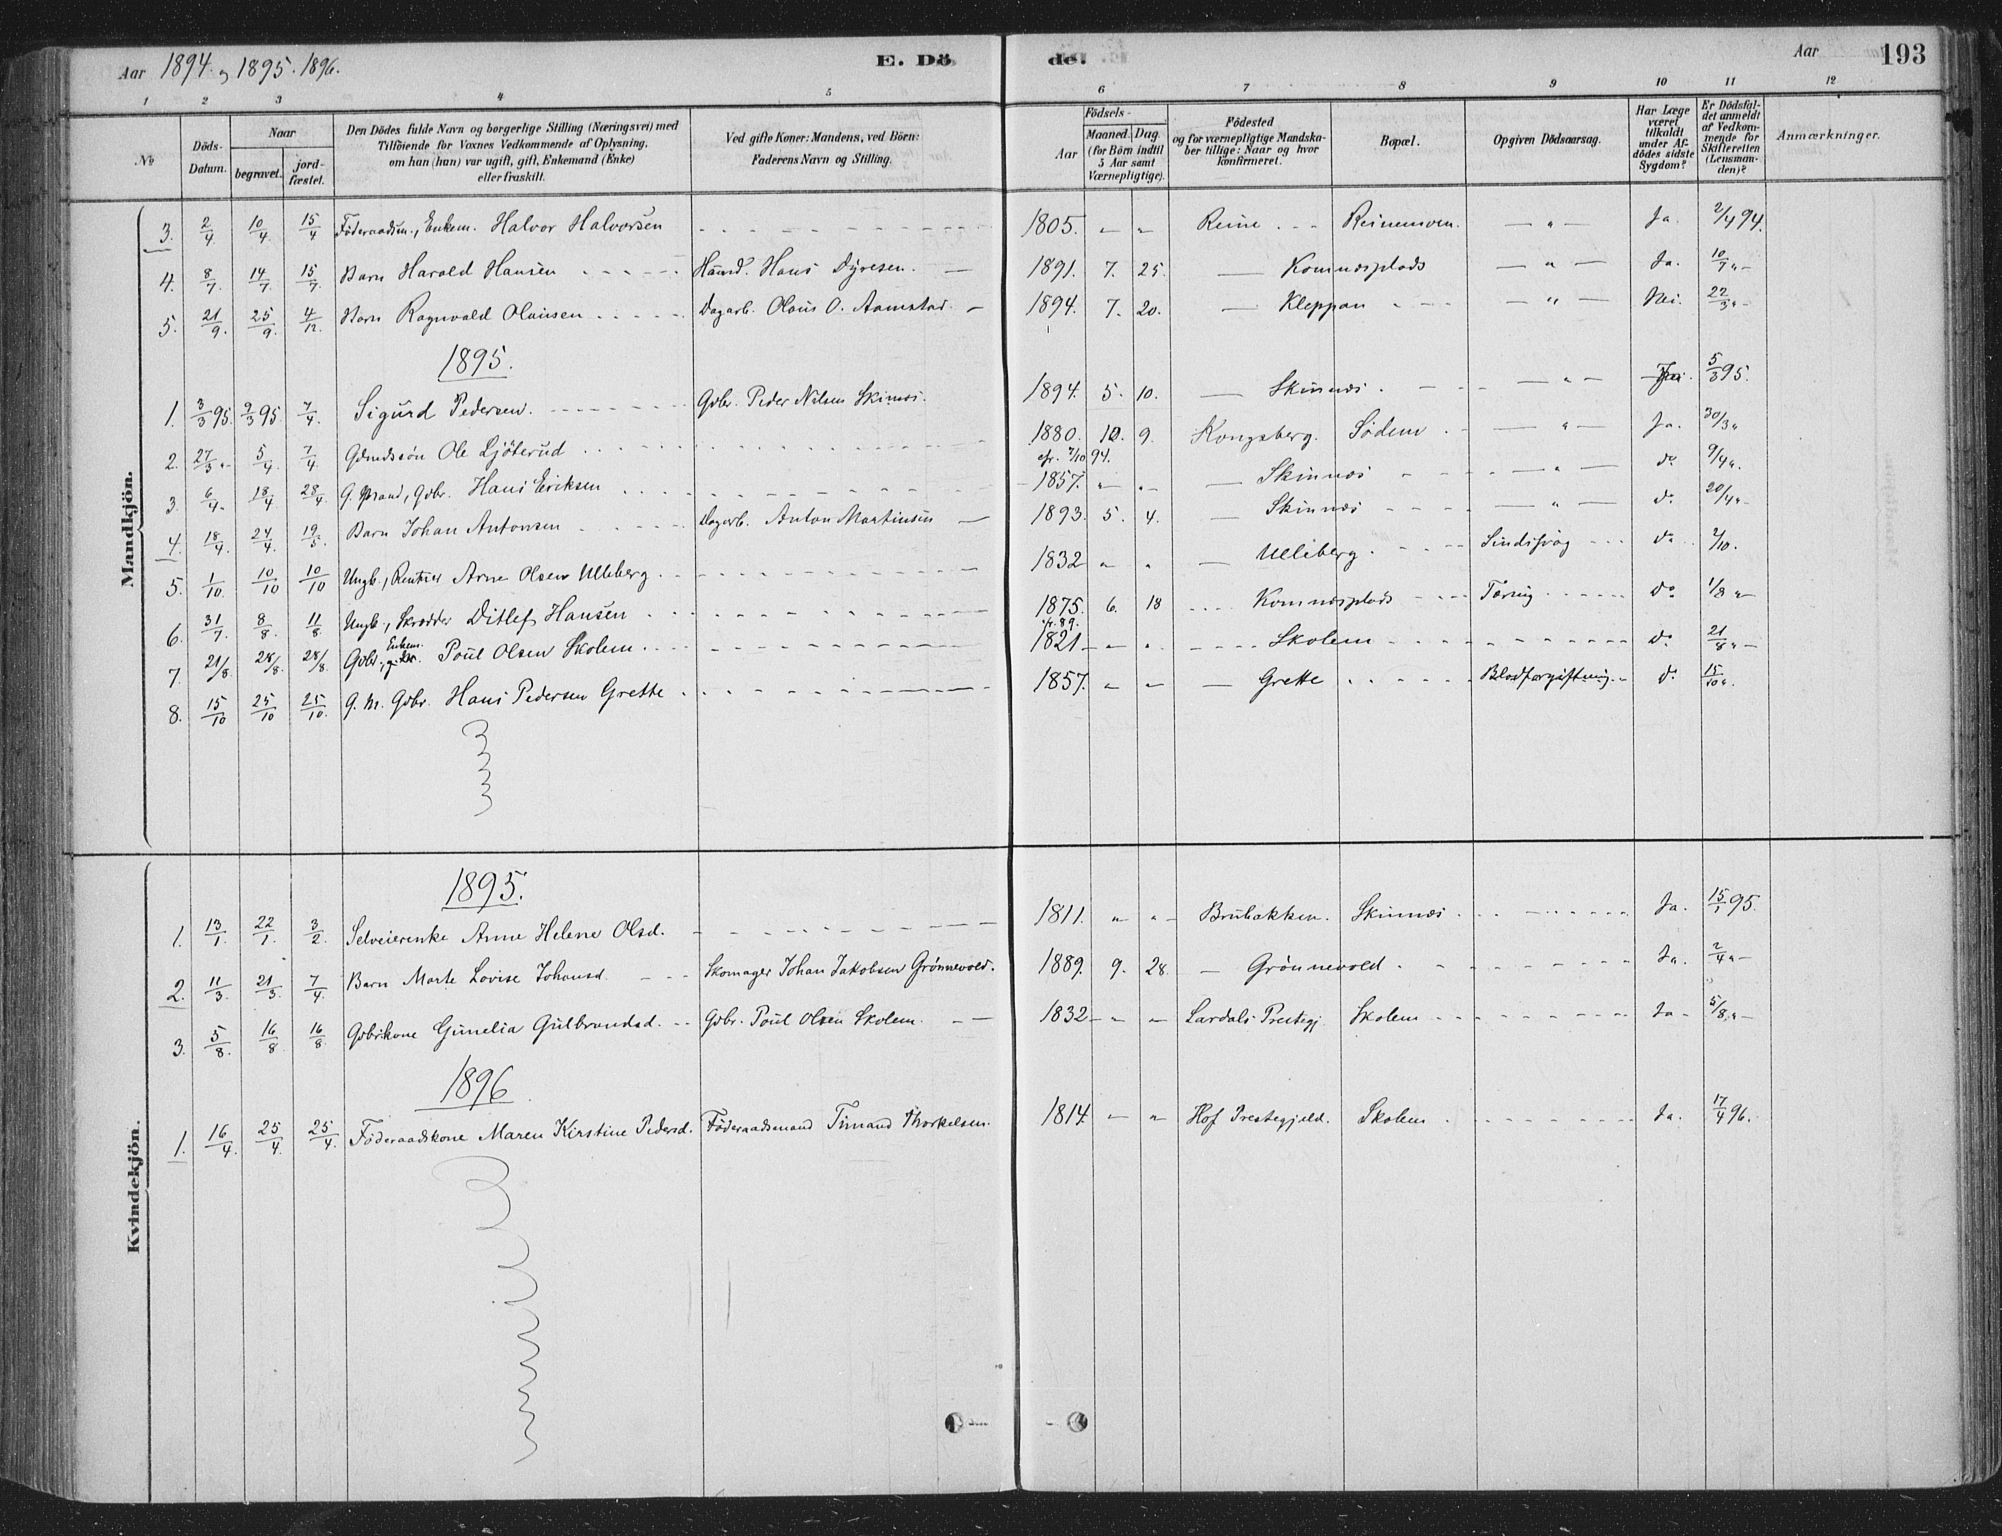 Aar 1894 og 1895. 1896.
E. Dö de.
Aar 193
1 2 3 4 5 6 7 8 9 10 11 12
No
Döds-Datum.
Naar
begravet.
jord-fæstet.
Den Dödes fulde Navn og borgerlige Stilling (Næringsvei) med
Tilföiende for Voxnes Vedkommende af Oplysning,
om han (hun) var ugift, gift, Enkemand (Enke)
eller fraskilt.
Ved gifte Koner: Mandens, ved Börn:
Faderens Navn og Stilling.
Födsels-
Aar
Maaned. Dag.
(for Börn indtil
5 Aar samt
Værnepligtige).
Födested
og for værnepligtige Mandska-
ber tillige: Naar og hvor
konfirmeret.
Bopæl.
Opgiven Dödsaarsag.
Har Læge
været
tilkaldt
under Af-
dödes sidste
Sygdom?
Er Dödsfal-
det anmeldt
af Vedkom-
mende for
Skifteretten
(Lensman-
den)?
Anmærkninger.
Mandkjön.
3. 2/4 10/4 15/4 Föderaadsm., Enkem. Halvor Halvorsen 1805. " " Reine Reinemoen. " Ja. 2/4 94.
4. 8/7. 14/7 15/7. Barn Harald Hansen Hans Dyresen. 1891. 7. 25. Komnæsplads " Ja. 10/7 "
5. 21/9. 25/9. 4/12. Barn Ragnvald Olausen Dagarb. Olaus O. Aamstad 1894. 7. 20. Kleppan " Nei. 22/3 "
1895.
1. 3/3 95. 9/3 95. 7/4. Sigurd Pedersen. Gdbr. Peder Nilsen Skinnæs. 1894. 5. 10. Skinnæs. " Ja. 5/3 95.
2. 27/3 " 5/4. 7/4 Gdmdssön Ole Ljöterud 1880. 10. 9. Kongsberg. Södem " Ja. 30/3 "
cfr. 7/10 94.
3. 6/4. 18/4 28/4 G. Mand, Gdbr. Hans Eriksen 1857. " " Skinnæs " do 9/4 "
4. 18/4. 24/4. 19/5. Barn Johan Antonsen Dagarb. Anton Martinsen 1893. 5. 4. Skinnæs " do 20/4 "
5. 1/10. 10/10 10/10 Ungk., Rentier Arne Olsen Ulleberg. 1832 " " Ulleberg. Sindssvag do 2/10.
6. 31/7. 8/8. 11/8. Ungk., Skrædder Ditlef Hansen 1875. 6. 18 Komnæsplads Tæring do 1/8 "
cfr. 89.
7. 21/8 28/8. 28/8. Gdbr., Enkem. Poul Olsen Skolem. 1821 " " Skolem do 21/8 "
8. 15/10 25/10 25/10. G. M. Gdbr. Hans Pedersen Grette 1857. " " Grette Blodforgiftning do 15/10 "
Kvindekjön.
1895.
1. 13/1. 22/1. 3/2. Selveierenke Anne Helene Olsd. 1811. " " Brubakken. Skinnæs. Ja. 15/1 95.
2. 11/3. 21/3. 7/4. Barn Marte Lovise Johansd. Skomager Johan Jakobsen Grönnevold. 1889. 9. 28. Grönnevold. Ja. 2/4 "
3. 5/8. 16/8 16/8 Gdbrkone Gunelia Gulbrandsd. Gdbr. Poul Olsen Skolem. 1832 " " Lardals Prestegj. Skolem Ja 5/8. "
1896
1. 16/4. 25/4. 25/4. Föderaadskone Maren Kirstine Pedersd. Föderaadsmand Timand Thorkelsen. 1814. " " Hof Prestegjeld. Skolem Ja. 17/4 96.